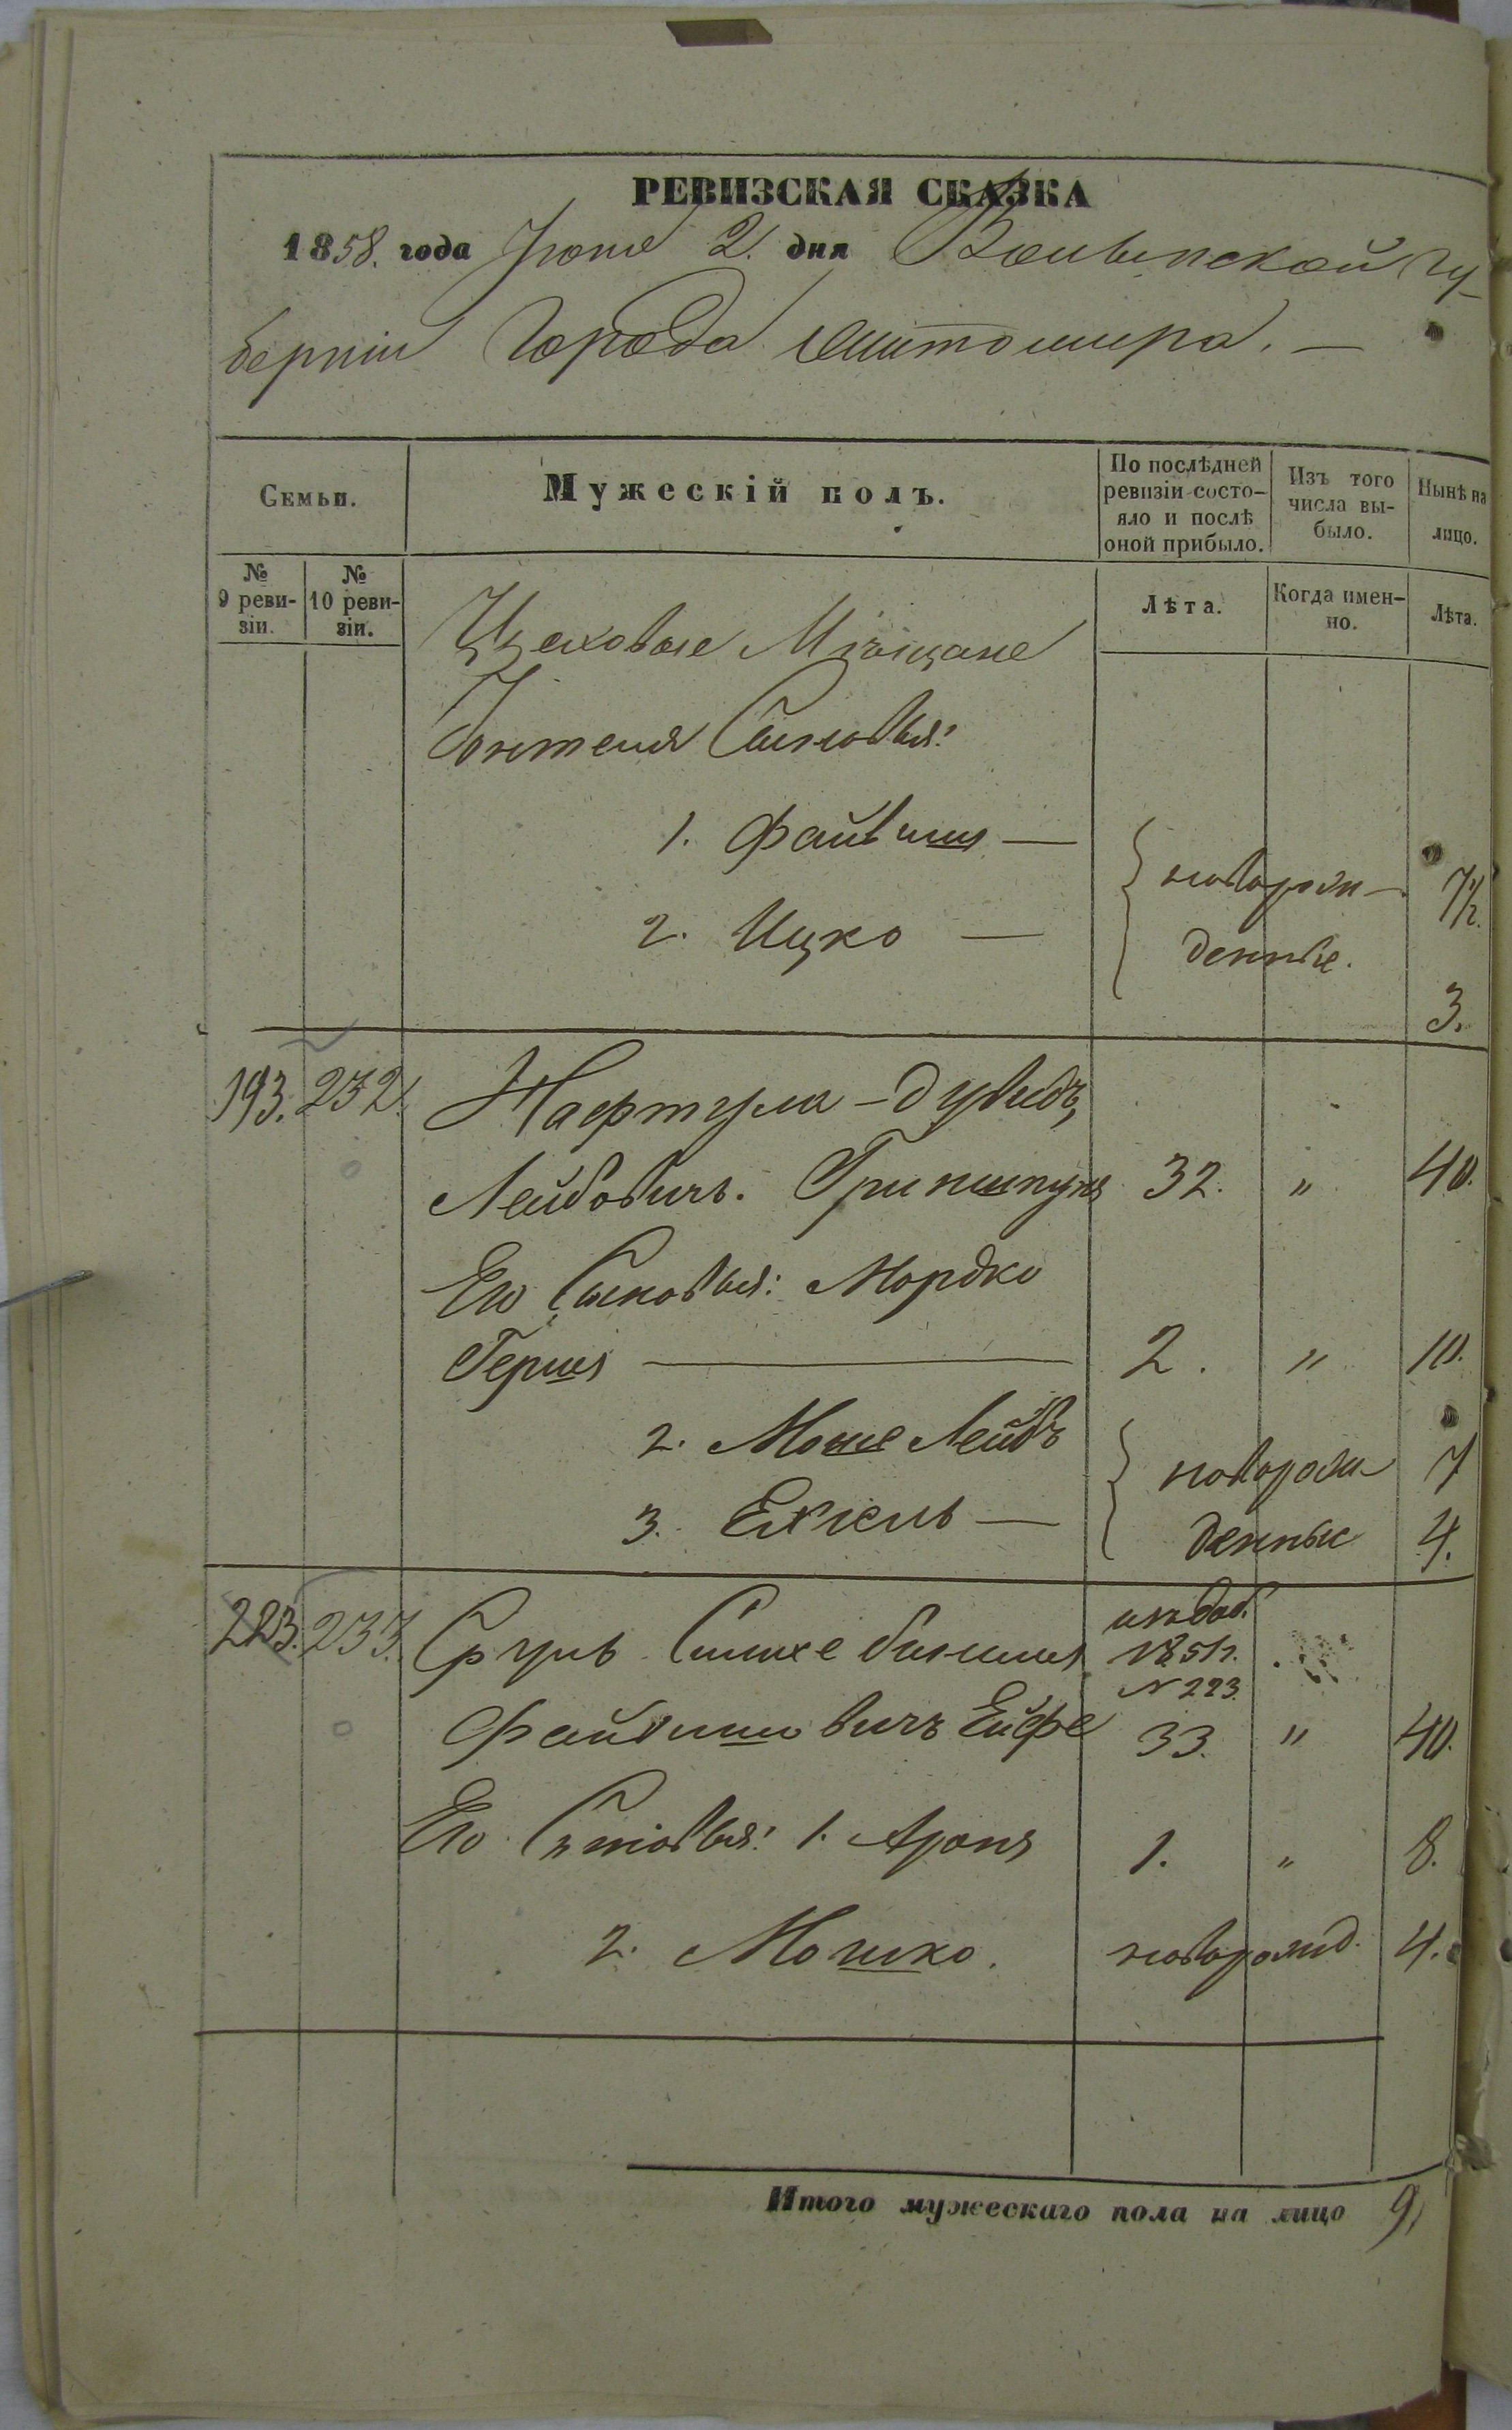 РЕВИЗСКАЯ СКАЗКА
1858. года Іюня 2. дня Волынской гу-
берніи города Житомира. —
Семьи.
Мужескій полъ.
По послѣдней ревизіи состо-яло и послѣ оной прибыло.
Изъ того числа вы-было.
Нынѣ на лицо.
№ 9 реви-зіи.
№ 10 реви-зіи.
Лѣта.
Когда имен-но.
Лѣта.
Цеховые Мѣщане
Сыновья:
1. Файвишъ — новорож- 7½
2. Ицко — денные. 3.
193. 232. Нафтула-Дувидъ
Лейбовичъ. 32. " 40.
Его Сыновья: Мордко
Гершъ — 2. " 10.
2. Моше Лейбъ новорож- 7
3. Ехіель — денные 4.
223. 233. Сруль Симхе биниминъ
1851 г.
№ 223.
Файвишовичъ Ейфе 33. " 40.
Его Сыновья: 1. Аронъ 1. " 8.
2. Мошко. новорожд. 4.
Итого мужескаго пола на лицо 9,